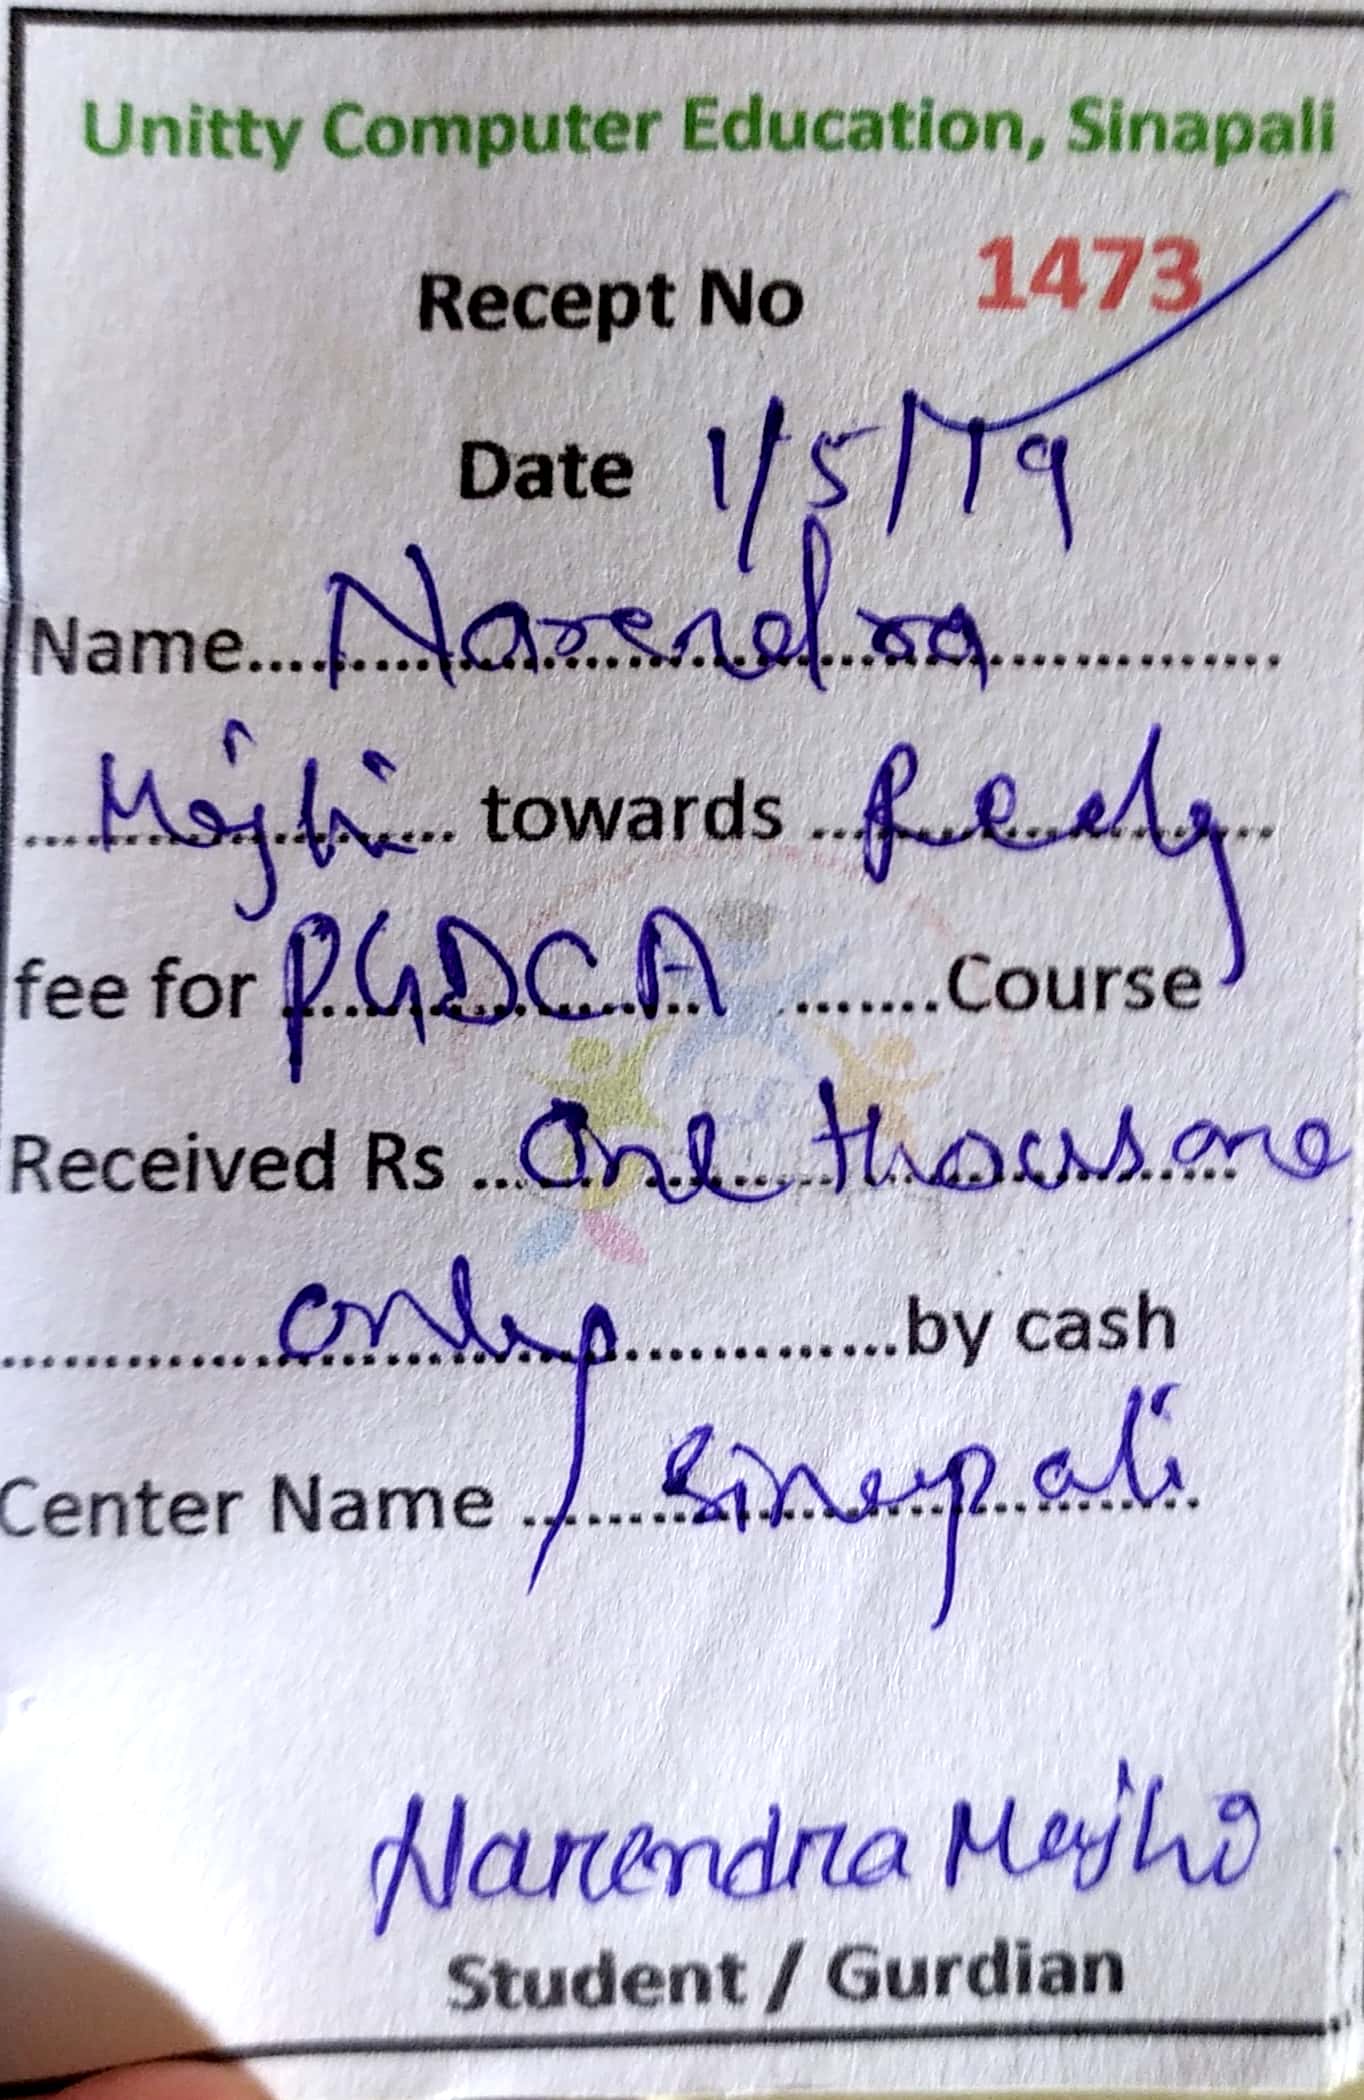 Unitty Computer Education, Sinapali
Recept No 1473
Date 1/5/19
Name.... Narendra
Majhi towards
fee for PGDCA Course
Received Rs One thousand
only by cash
Center Name Sinapali
Narendra Majhi
Student / Gurdian